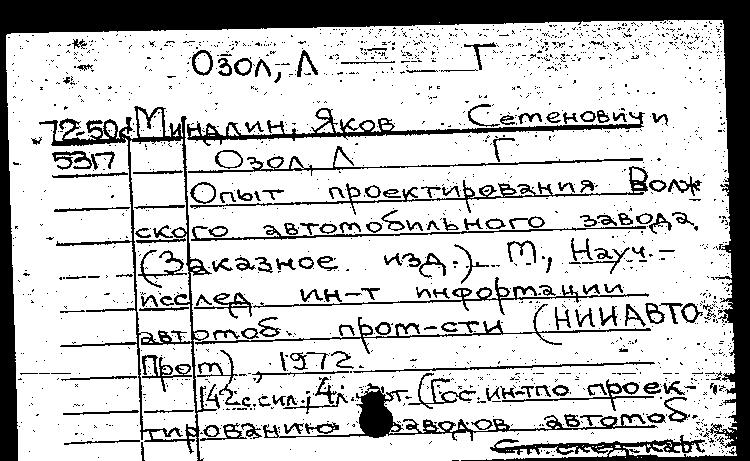 Озол, Л Г
72-50d Миндлин, Яков Семенович и
5317 Озол, Л Г
Опыт проектирования Волж
ского автомобильного завода.
(Заказное изд.). М., Науч.-
исслед. ин-т информации
автомоб. пром-сти (НИИАВТО
Пром), 1972.
142с. с ил.; 4л. (Гос. ин-т по проек-
тированию заводов автомоб.
См. след. карт